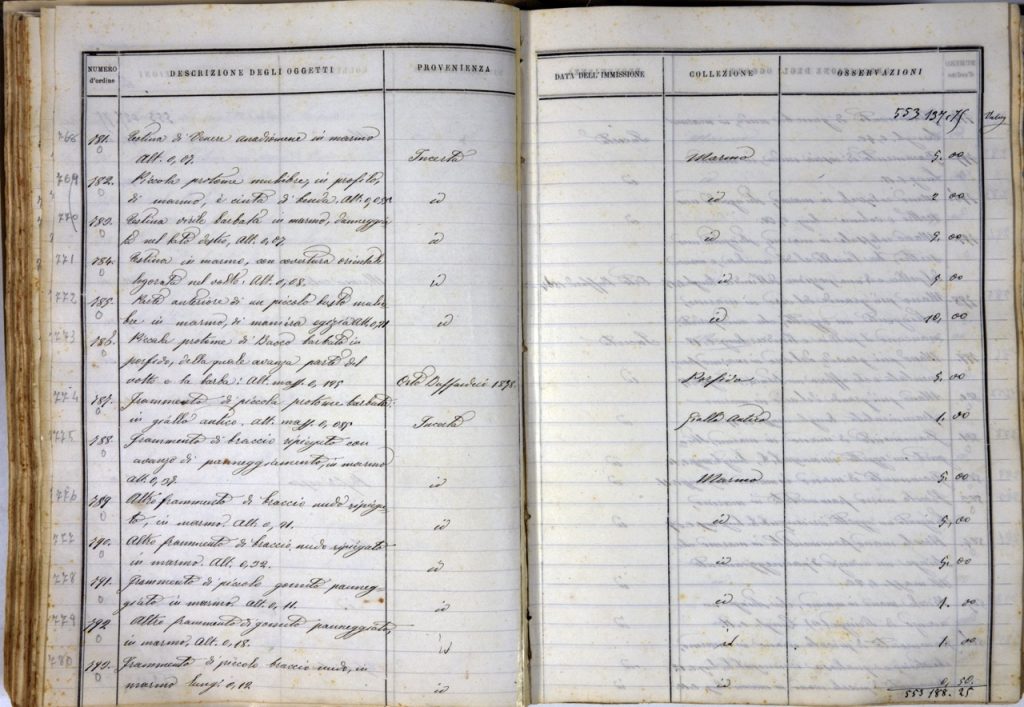 NUMERO d'ordine
DESCRIZIONE DEGLI OGGETTI
PROVENIENZA
DATA DELL'IMMISSIONE
COLLEZIONE
OSSERVAZIONI
553 137.75
768
181.
Testina di Venere anadiomene in marmo
Alt. 0,07.
Incerta
Marmo
5. 00
769
182.
Piccola protome muliebre, in profilo,
di marmo, è cinta di benda. Alt. 0,055
id
id
2 00
770
183.
Testina virile barbata in marmo, danneggia-
ta nel lato destro, Alt. 0,07.
id
id
771
184.
Testina in marmo, con covertura orientale
logorata nel volto: Alt. 0,08.
id
id
772
185.
Parte anteriore di un piccolo busto mulie-
bre in marmo, di maniera egizia Alt.
id
id
10, 00
773
186.
Piccola protome di Bacco barbato in
porfido, della quale avanza parte del
volto e la barba: Alt. mass. 0,
1838.
Porfido
5. 00
774
187.
Frammento di piccola protome barbata
in giallo antico. Alt. mass. 0,
Incerta
Giallo Antico
1. 00
775
188.
Frammento di braccio ripiegato con
avanzo di panneggiamento, in marmo
alt. 0,
id
Marmo
5. 00
776
189.
Altro frammento di braccio nudo ripiega-
to, in marmo. Alt. 0,
id
id
5, 00
777
190.
Altro frammento di braccio nudo ripiegato
in marmo. Alt. 0,
id
id
5. 00
778
191.
Frammento di piccolo gomito panneg-
giato in marmo. Alt. 0,11.
id
id
1. 00
779
192.
Altro frammento di gomito panneggiato,
in marmo, Alt. 0,18.
id
id
1. 00
780
193.
Frammento di piccolo braccio nudo, in
marmo lung. 0,12
id
id
0, 50.
553 188. 25